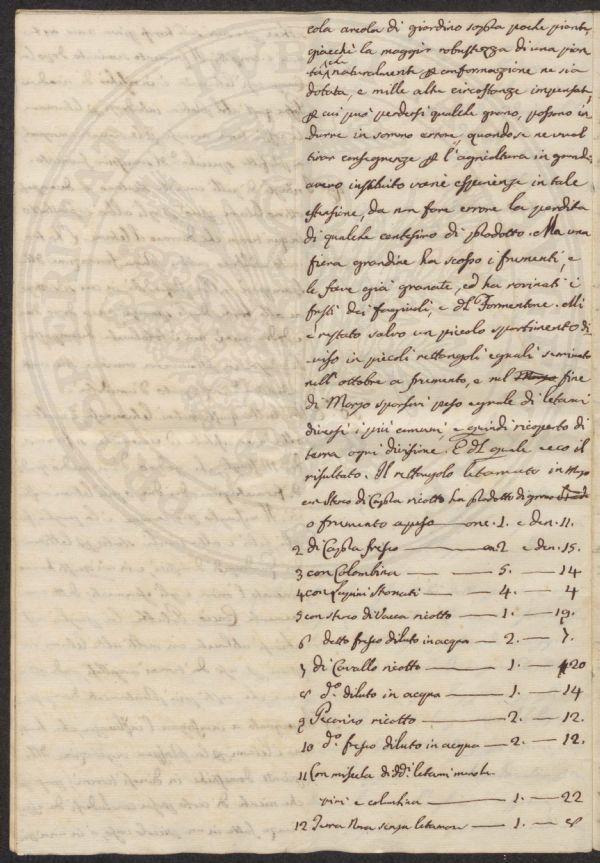 cola areola di giardino sopra poche piante,
giacchè la maggior robustezza di una pian
ta, che naturalmente p conformazione ne sia
dotata, e mille altre circostanze impensate,
p cui può perdersi qualche grano, possono in
durre in sommo errore, quando se ne vuol
tirar conseguenze p l'agricoltura in grande
avevo instituito varie esperienze in tale
estensione, da non fare errore la perdita
di qualche centesimo di prodotto. Ma una
fiera grandine ha scosso i frumenti, e
le fave già granate, ed ha rovinati i
frutti dei fagiuoli, e del Formentone. Mi
è restato salvo un piccolo spartimento di
viso in piccoli rettangoli eguali seminato
nell'ottobre a frumento, e nel fine
di Marzo sparsavi peso eguale di letami
diversi i più comuni, e quindi ricoperto di
terra ogni divisione. E del quale ecco il
risultato. Il rettangolo letamato in Marzo
con sterco di Capra ricotto ha prodotto di grano
o frumento a peso — onc. 1. e den. 11.
2 di Capra fresco — on 2 e den. 15.
3 con Colombina — 5. — 14
4 con Lupini Stonati — 4. — 4
5 con sterco di Vacca ricotto — 1. — 19.
6 detto fresco diluto in acqua — 2. — 7.
7 di Cavallo ricotto — 1. — 20
8 d.o diluto in acqua — 1. — 14
9 Pecorino ricotto — 2. — 12.
10 d.o fresco diluto in acqua — 2. — 12.
11 Con miscela di dd. letami meno la
vini e colombina — 1. — 22
12 Terra sola senza letamare — 1. — 8